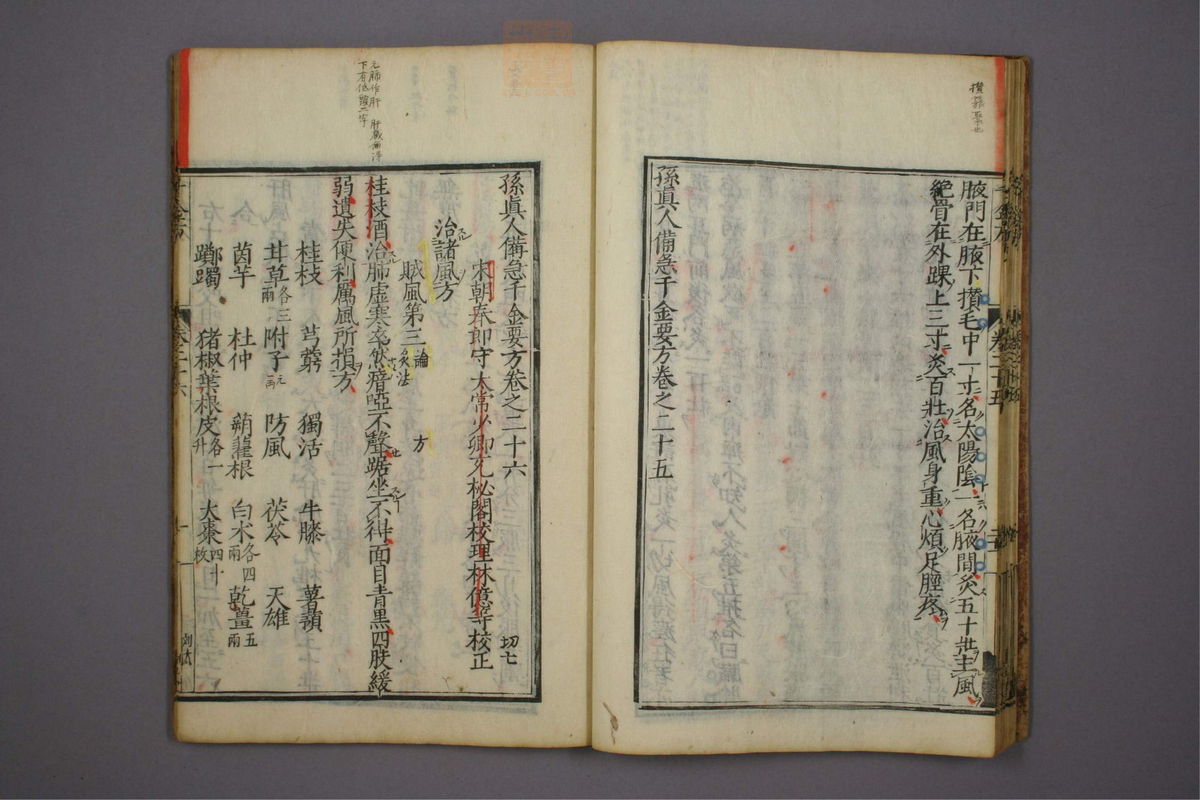 攢蕞聚也
腋門在腋下攢毛中一寸名太陽陰一名腋間灸五十壯主風
絕骨在外踝上三寸灸百壯治風身重心煩足脛疼
孫真人備急千金要方卷之二十五
元肺作肝 肝
下有
孫真人備急千金要方卷之二十六 切七
宋朝奉郎守太常少卿充秘閣校理林億等校正
治諸風方
賊風第三 論 灸法 方
桂枝酒治肺虛寒卒然瘖啞不聲踞坐不得面目青黑四肢緩
弱遺失便利厲風所損方
桂枝 芎藭 獨活 牛膝 薯蕷
甘草各三兩 附子二兩 防風 茯苓 天雄
茵芋 杜仲 蒴藋根 白朮各四兩 乾薑五兩
躑躅 猪椒葉根皮各一升 大棗四十枚